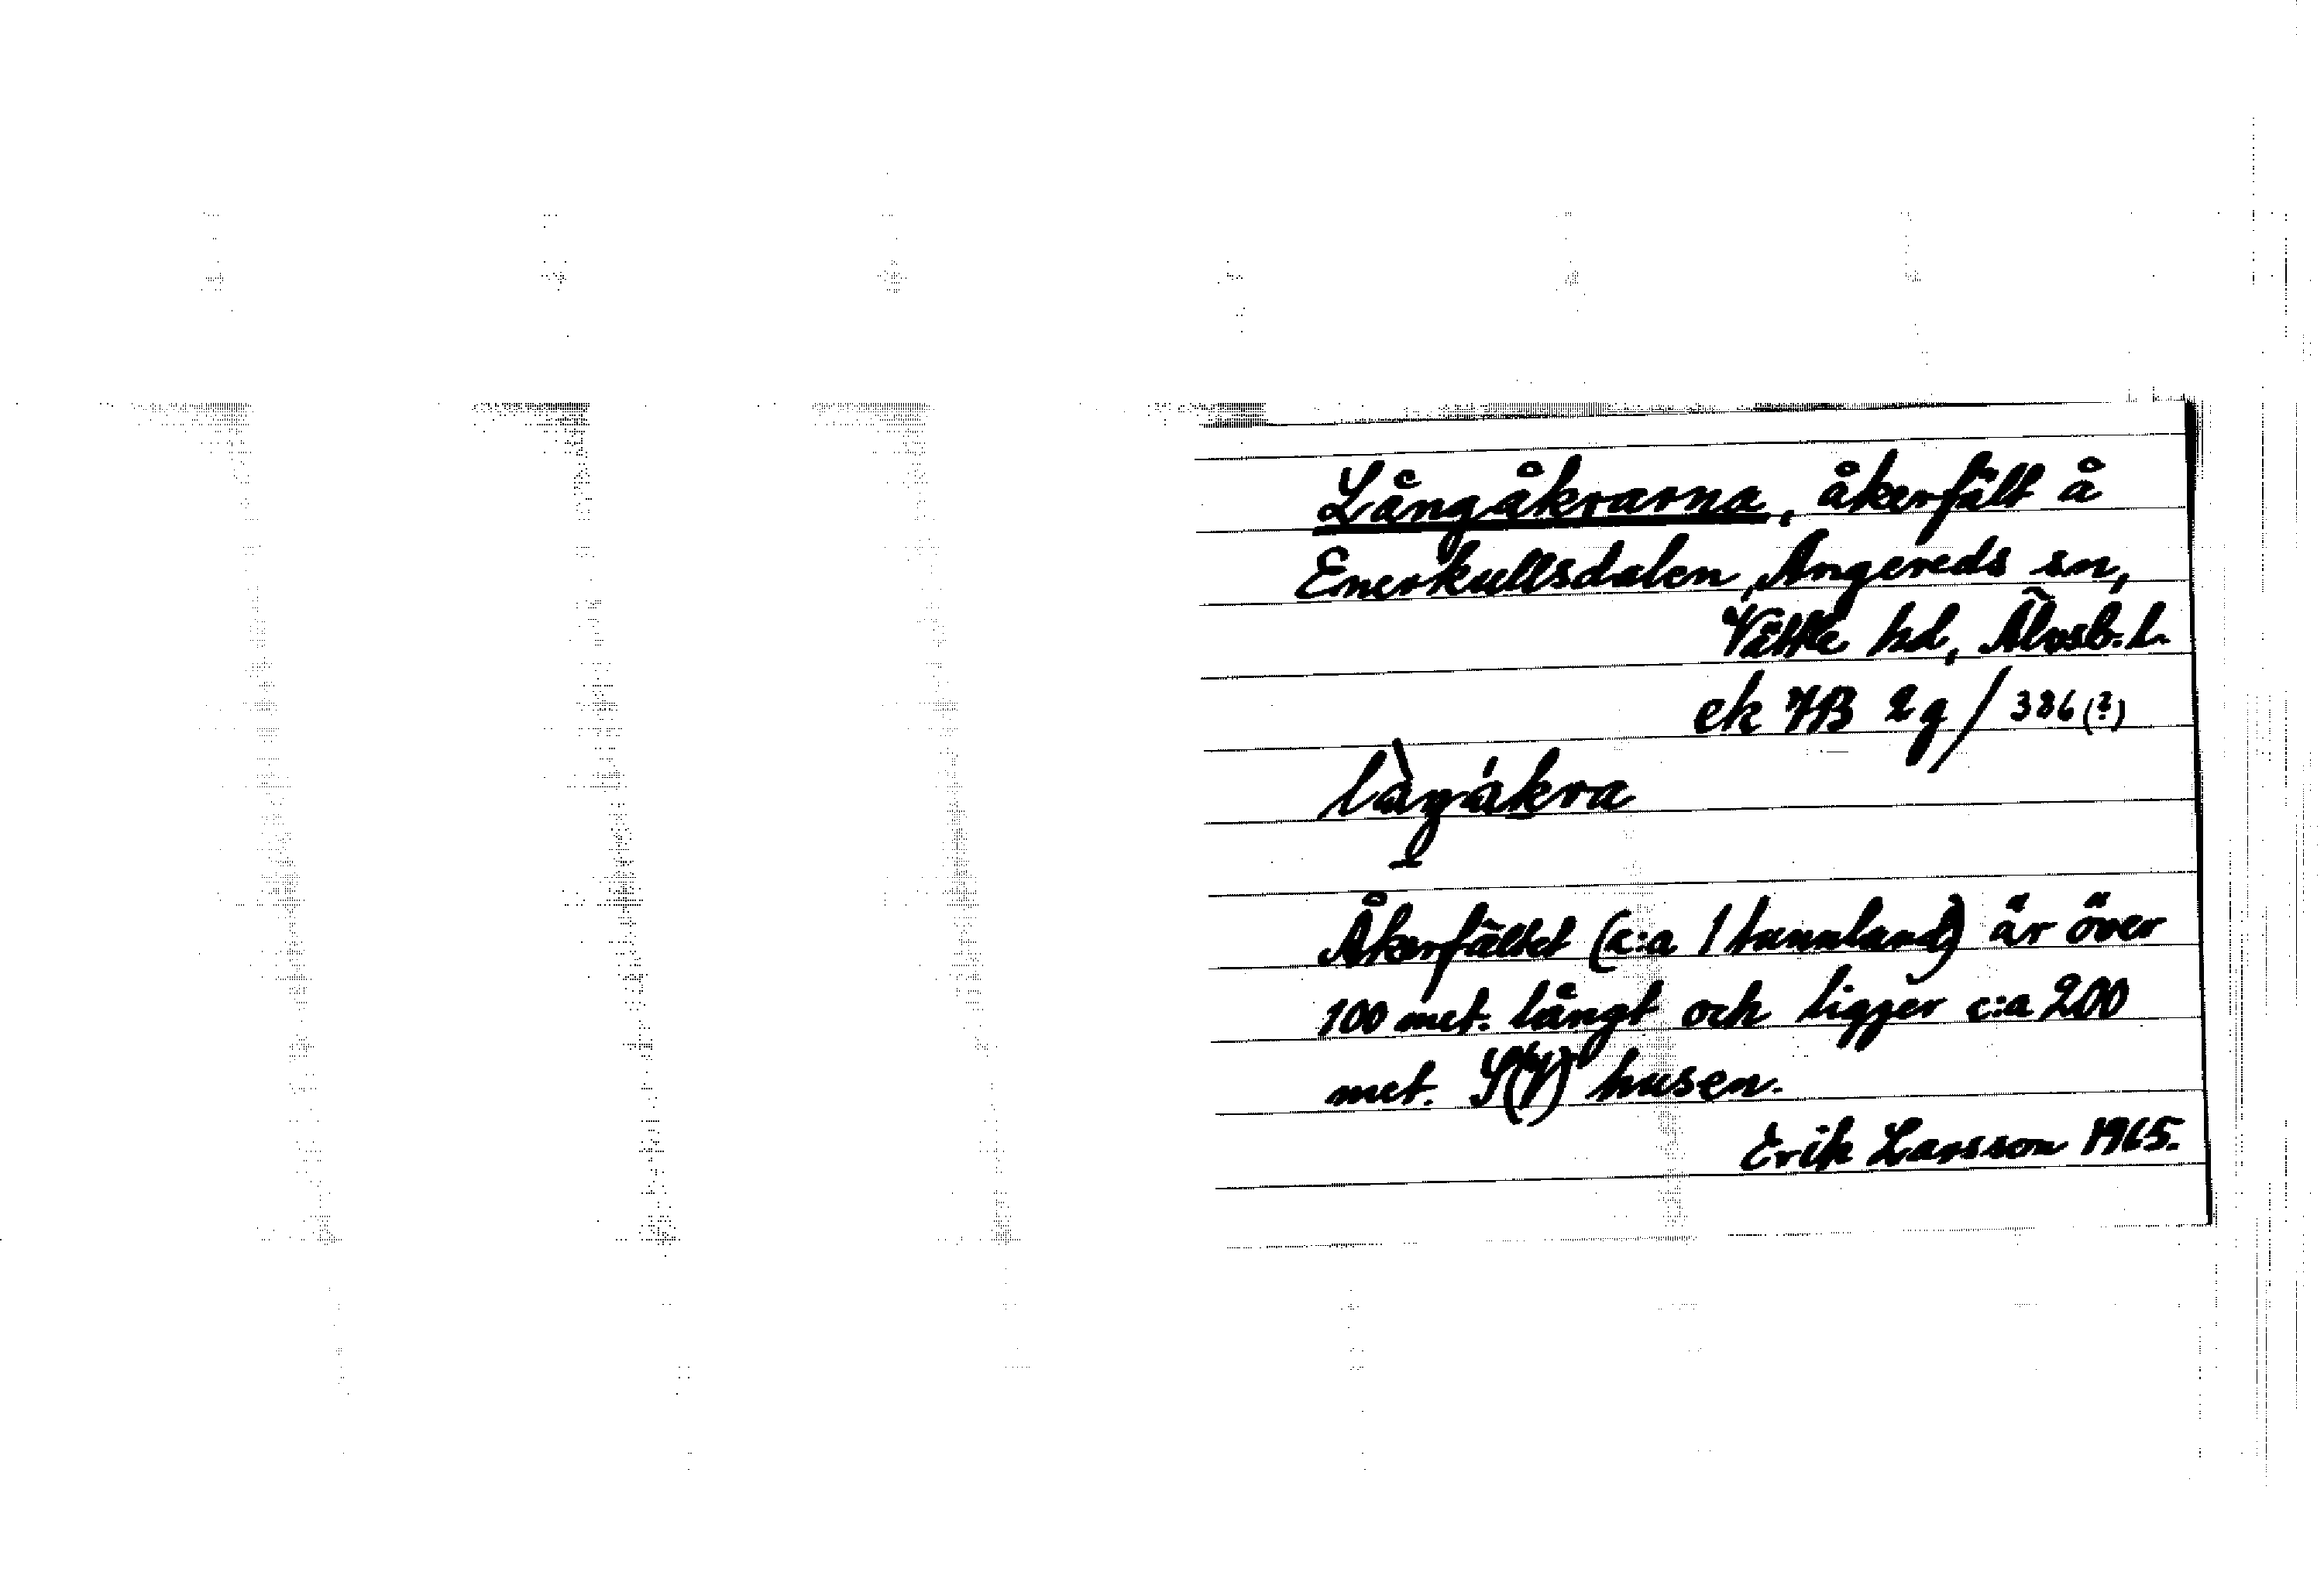 Långåkrarna, åkerfält å
Enerkullsdalen, Angereds sn,
Vättle hd, Älvsb. l.
ek 7B 2g/386(?)
làŋåkra
Åkerfältet (c:a 1 tunnland) är över
100 met. långt och ligger c:a 200
met. S(V) husen.
Erik Larsson 1965.